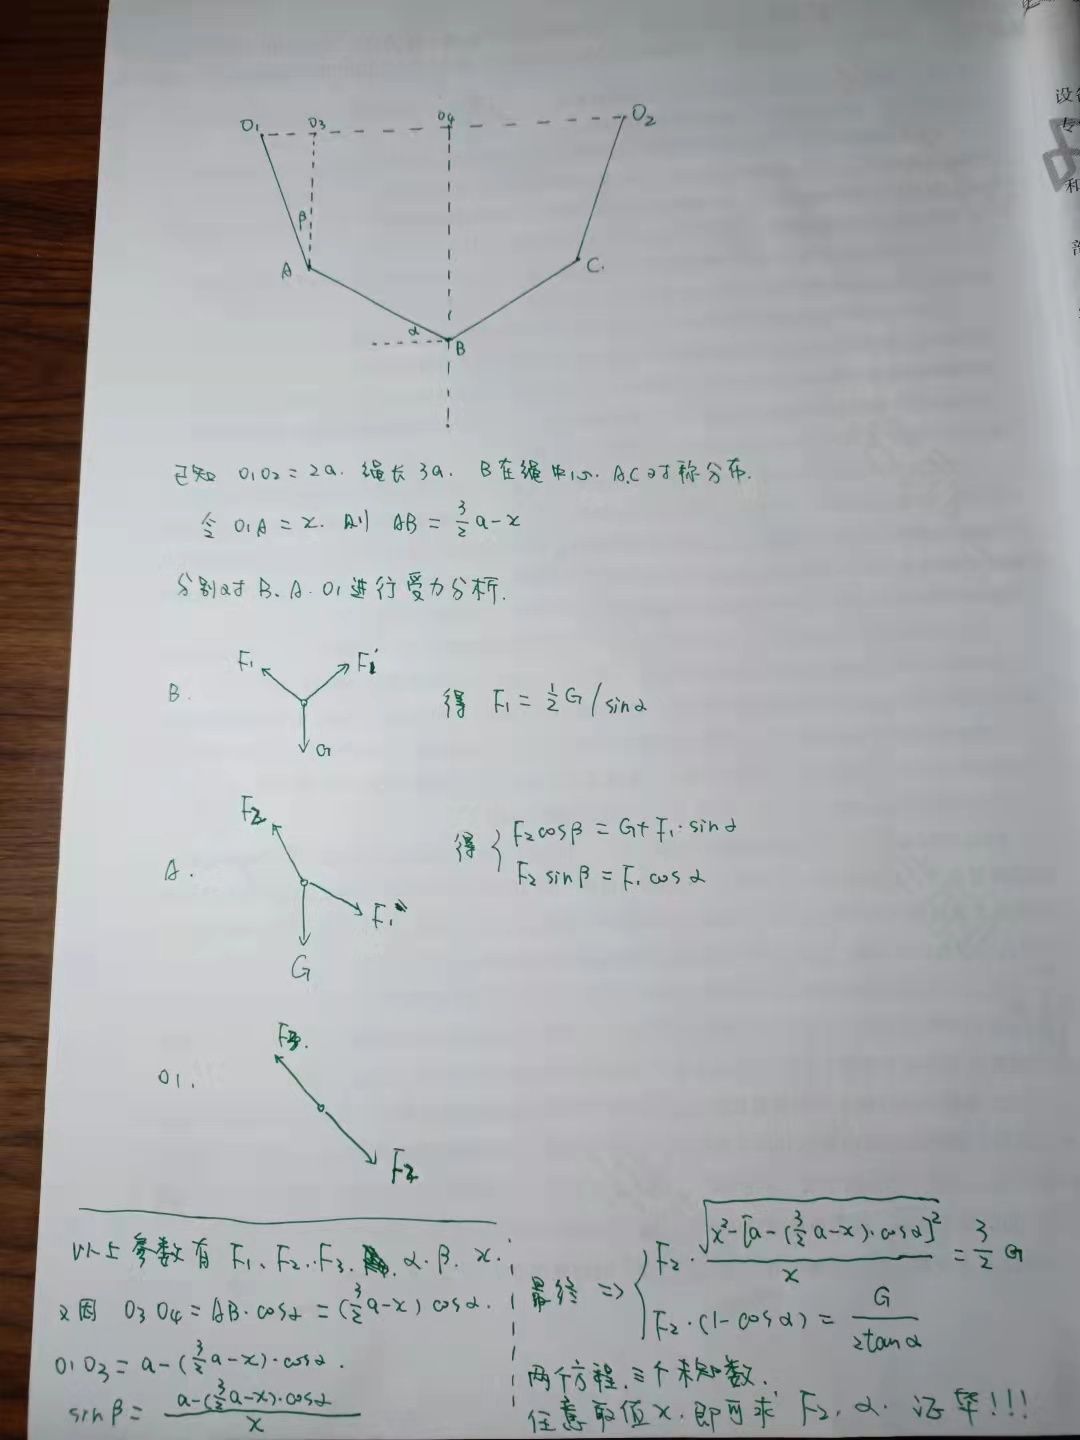 O₁ O₃ O₄ O₂
β
A C.
α
B
已知 O₁O₂ = 2a. 绳长 3a. B在绳中心. A.C对称分布.
令 O₁A = x. 则 AB = 3/2 a - x
分别对 B、A. O₁ 进行受力分析.
F₁ F₁'
B.
G
得 F₁ = 1/2 G / sinα
F₂
A.
F₁''
G
得 { F₂cosβ = G + F₁·sinα
F₂ sinβ = F₁ cosα
F₃.
O₁.
F₂
以上参数有 F₁、F₂、F₃、α. β. x.
又因 O₃O₄ = AB·cosα = (3/2 a - x) cosα.
O₁O₃ = a - (3/2 a - x)·cosα.
sinβ = (a - (3/2 a - x)·cosα) / x
最终 => { F₂ · √(x² - [a - (3/2 a - x)·cosα]²) / x = 3/2 G
F₂·(1 - cosα) = G / 2tanα
两个方程.三个未知数.
任意取值x. 即可求 F₂. α. 证毕!!!
设
专
和